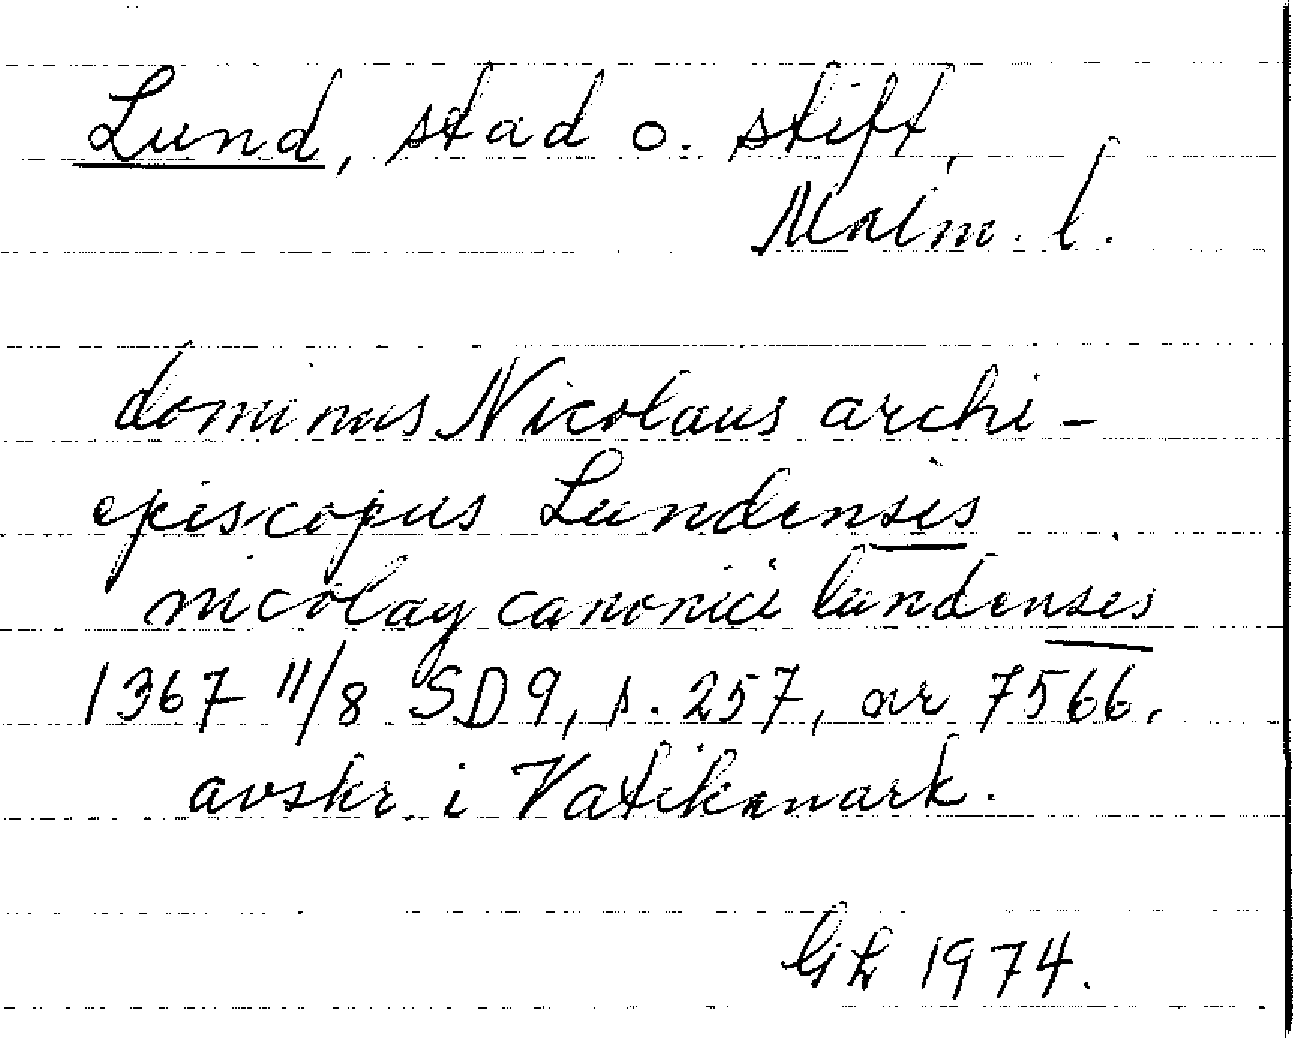 Lund, stad o. stift,
Malm. l.
dominus Nicolaus archi-
episcopus Lundensis
nicolay canonici lundenses
1367 11/8 SD9, s. 257, nr 7566.
avskr. i Vatikanark.
Gh 1974.